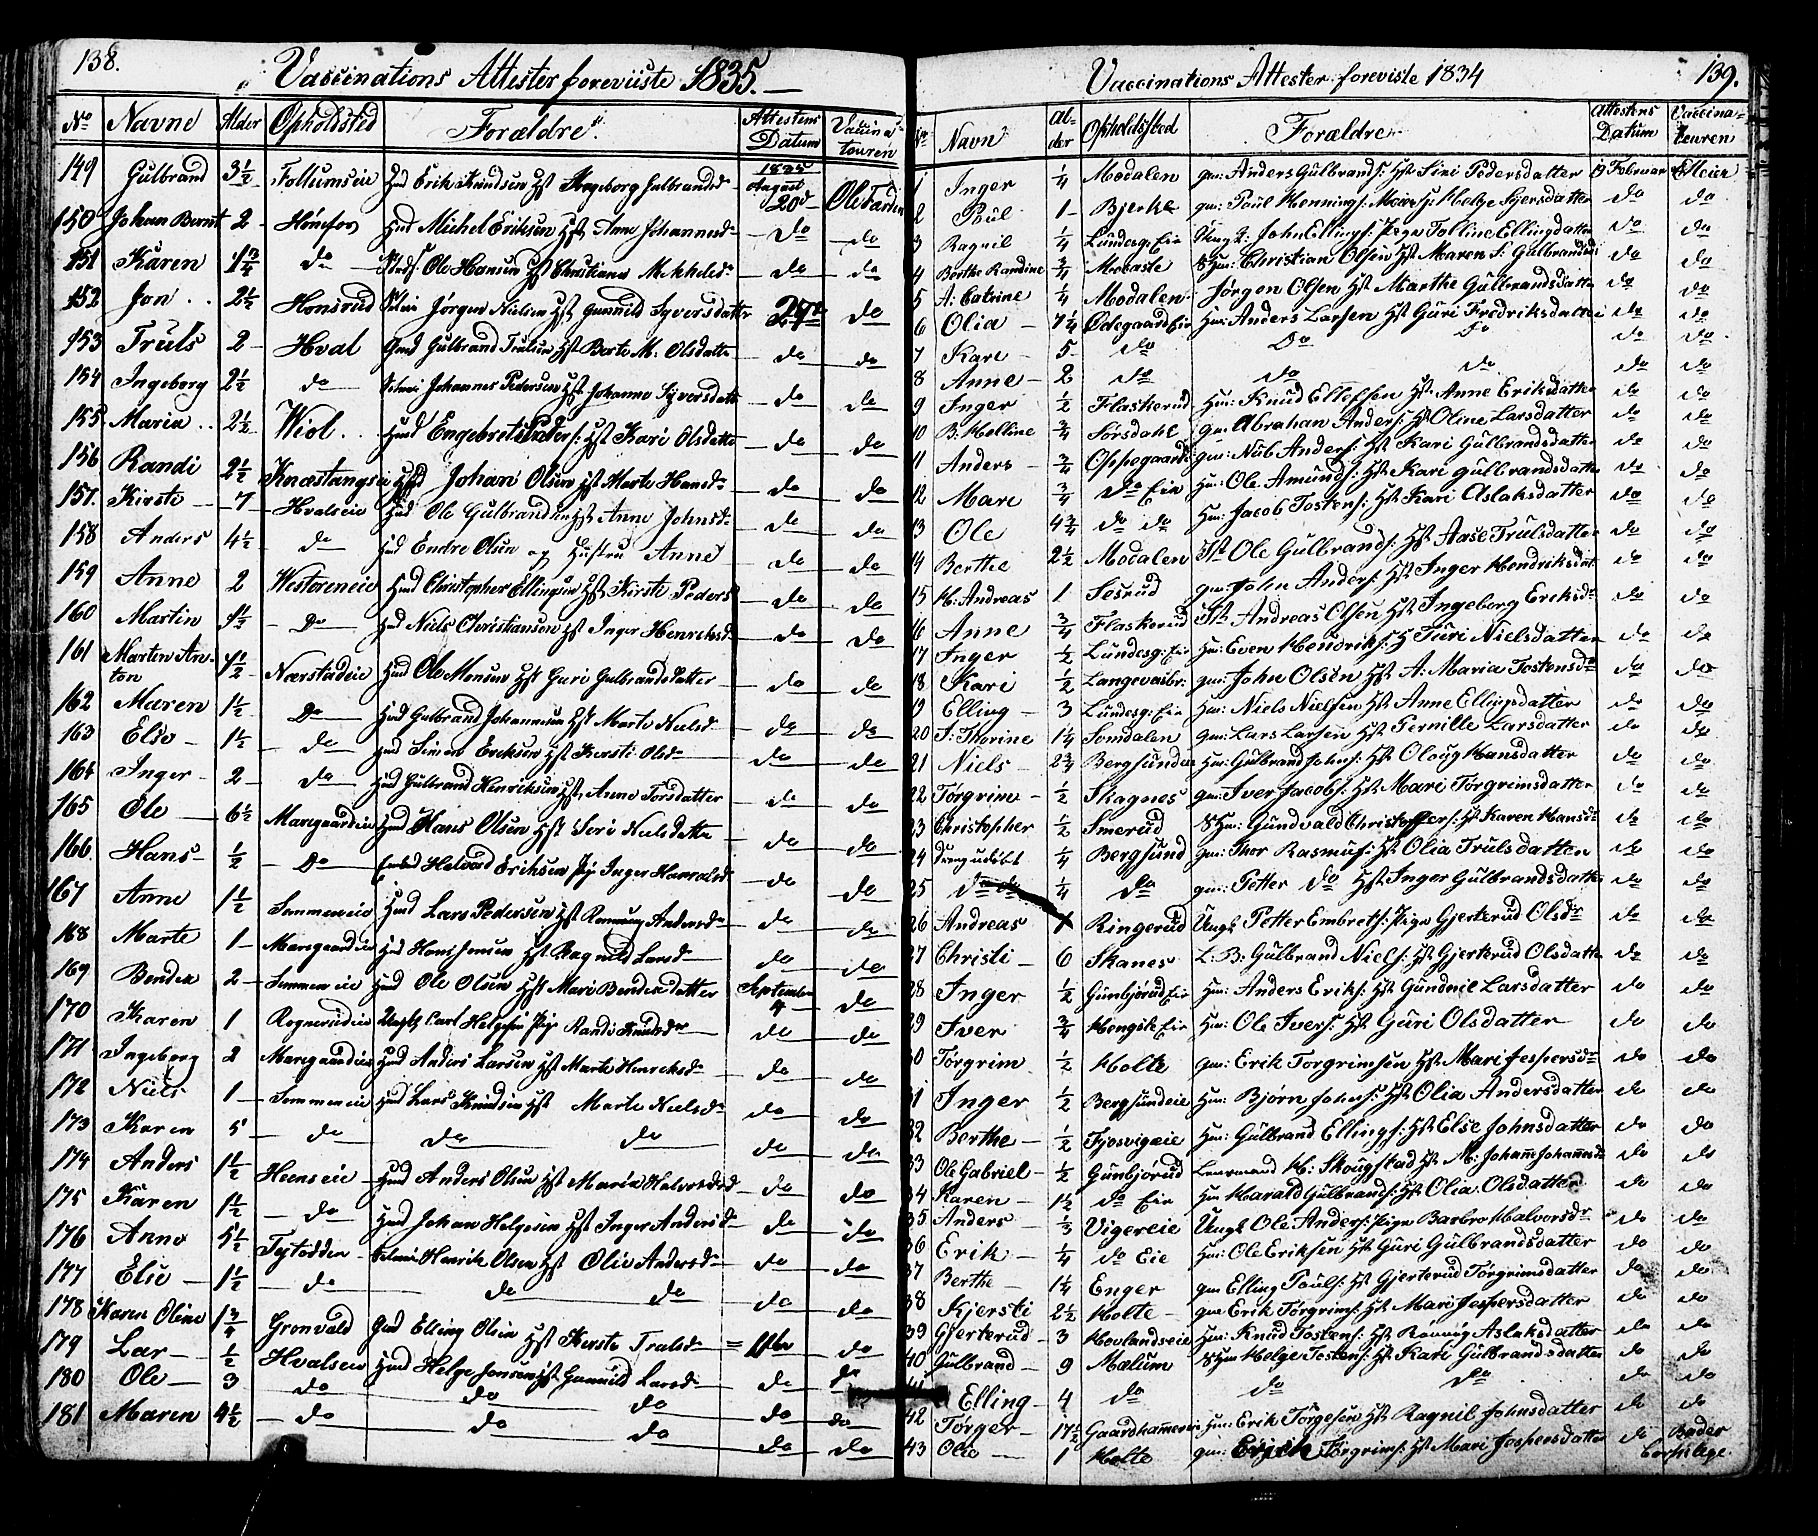 138.
Vaccinations Attester foreviiste 1835.
No Navne Alder Opholdsted Forældre Attestens Datum Vaccinateuren
149 Gulbrand 3 1/2 Follumseie Hmd Erik Knudsen Hst Ingeborg Gulbrandsd 1835 August 20de Ole Farden
150 Johan Bernt 2 Hønefos Hmd Michel Eriksen Hst Anne Johannesd do do
151 Karen 1 3/4 do Ole Hansen Hst Christiane Mikkelsd do do
152 Jon 2 1/2 Honsrud Jørgen Nielsen Hst Gunnild Syversdatter 27de do
153 Truls 2 Hval Gmd Gulbrand Trulsen Hst Berte M. Olsdatter do do
154 Ingeborg 2 1/2 do Johannes Pedersen Hst Johanne Syversdatter do do
155 Maria 2 1/2 Wiol Hmd Engebret Hst Kari Olsdatter do do
156 Randi 2 1/2 Knæstangseie Hmd Johan Olsen Hst Marte Hansd do do
157 Kirsti 7 Hvalseie Hmd Ole Gulbrandsen Hst Anne Johnsd do do
158 Anders 4 1/2 do Hmd Endre Olsen og Hustru Anne do do
159 Anne 2 Westereneie Hmd Christopher Ellingsen Hst Kirsti Peders do do
160 Martin 1 1/2 Do Hmd Niels Christiansen Hst Inger Henriksd do do
161 Marten Anton 1 1/2 Nærstadeie Hmd Ole Monsen Hst Guri Gulbrandsdatter do do
162 Maren 1 1/2 Do Hmd Gulbrand Johannesen Hst Marte Nielsd do do
163 Else 1 1/2 do Hmd Simen Eriksen Hst Kersti Olsd do do
164 Inger 2 do Hmd Gulbrand Henriksen Hst Anne Torsdatter do do
165 Ole 6 1/2 Moregaardeie Hmd Hans Olsen Hst Siri Nielsdatter do do
166 Hans 1/2 Do Halvord Eriksen Inger Haraldsd do do
167 Anne 1 1/2 Semmeneie Hmd Lars Pedersen Hst Rønnaug Andersd do do
168 Marte 1 Moregaardeie Hmd Hans Jensen Hst Ragnild Larsd do do
169 Bendix 2 Semmeneie Hmd Ole Olsen Hst Mari Bendixdatter September 4 do
170 Karen 1 Carl Helgesen Pige Randi Knudsdr do do
171 Ingeborg 2 Moregaardeie Hmd Anders Larsen Hst Marte Henriksd do do
172 Niels 1 Semmeneie Hmd Lars Knudsen Hst Marte Nielsd do do
173 Karen 5 do do do do do
174 Anders 1 1/2 Heenseie Hmd Anders Olsen Hst Maria Halvorsd do do
175 Karen 1 1/2 do Hmd Johan Helgesen Hst Inger Andersd do do
176 Anne 5 1/2 Henrik Olsen Hst Olie Andersd do do
177 Else 1 1/2 do do do do do
178 Karen Oline 1 3/4 Gronvald Gmd Elling Olsen Hst Kersti Trulsd 11te do
179 Lar 1/2 Hvalseie Hmd Helge Jonsen Hst Gunnild Larsd do do
180 Ole 3 do do do do do
181 Maren 4 1/2 do do do do do
139.
Vaccinations Attester foreviste 1834
No Navn Alder Opholdsted Forældre Attestens Datum Vaccinateuren
1 Inger 1/4 Modalen gm: Anders Gulbrands: Hst Siri Pedersdatter 9 Februar E Meier
2 Poul 1 Bjerke gm: Poul Hennings: Moe Hst Helge Syersdatter do do
3 Ragnil 1/4 Lundesg: Eie Ungk: John Ellings: Pige Tolline Ellingdatter do do
4 Berthe Randine 3/4 Moeaste Christian Olsen Hst Maren S: Gulbrandsd do do
5 A: Catrine 1/4 Modalen Jørgen Olsen Hst Marthe Gulbrandsdatter do do
6 Olia 7 1/4 Ødegaard Eie Hm: Anders Larsen Hst Guri Fredriksdatter do do
7 Kari 5 do Do Do do do
8 Anne 2 do do do do do
9 Inger 1/2 Flaskerud Hm: Knud Ellefsen Hst Anne Eriksdatter do do
10 B: Helline 3/4 Sørsdahl gm: Abrahan Anders: Hst Oline Larsdatter do do
11 Anders 3/4 Oppegaard gm: Nub Anders: Hst Kari Gulbrandsdatter do do
12 Mari 3/4 do Eie Hm: Ole Amunds: Hst Kari Gulbrandsdatter do do
13 Ole 4 3/4 do do Hm: Jacob Tostens: Hst Kari Aslaksdatter do do
14 Berthe 2 1/2 Modalen Ole Gulbrands: Hst Aase Trulsdatter do do
15 H: Andreas 1 Sesrud gm: John Anders: Hst Inger Hendriksdat do do
16 Anne 3/4 Flaskerud Andreas Olsen Hst Ingeborg Eriksd: do do
17 Inger 1/2 Lundesg: Eie Hm: Even Hendriks: H Turi Nielsdatter do do
18 Kari 1/2 Langevasbr: gm: John Olsen Hst A: Maria Tostensdr do do
19 Elling 3 Lundesg: Eie Hm: Niels Nielsen Hst Anne Ellingsdatter do do
20 S: Thorine 1 1/4 Somdalen gm: Lars Larsen Hst Pernille Larsdatter do do
21 Niels 2 3/4 Bergsundeie Hm: Gulbrand Johns: Hst Oloug Hansdatter do do
22 Torgrim 1/2 Skagnes gm: Iver Jacobs: Hst Mari Torgrimsdatter do do
23 Christopher 1/2 Smerud Hm: Gundvald Christoffers: Hst Karen Hansdr do do
24 Dreng udøbt 1/4 Bergsund gm: Thor Rasmus: Hst Olia Trulsdatter do do
25 do do 1/4 do gm: Petter do Hst Inger Gulbrandsdatte do do
26 Andreas 1 Ringerud Ungk Petter Embrets: Pige Gjertrud Olsdr do do
27 Christi 6 Skanes L: B: Gulbrand Niels: Hst Gjertrud Olsdatte do do
28 Inger 1/2 Gunbjørud Eie Hm: Anders Eriks: Hst Gundnil Larsdatter do do
29 Iver 3/4 Hengsle Eie Hm: Ole Ivers: Hst Guri Olsdatter do do
30 Torgrim 1/2 Holte gm: Erik Torgrimsen Hst Mari Jespersdr do do
31 Inger 1/2 Bergsundeie Hm: Bjørn Johns: Hst Olia Andersdatter do do
32 Berthe 1/2 Fjosvigeie Hm: Gulbrand Ellings: Hst Else Johnsdatter do do
33 Ole Gabriel 1/2 Gunbjørud H: Skougstad Hst M: Johann Johannesd do do
34 Karen 1 1/2 do Eie Hm Harald Gulbrands: Hst Olia Olsdatter do do
35 Anders 1/3 Vigereie Ungk Ole Anders: Pige Barbro Halvorsdr do do
36 Erik 1/4 do Eie Hm: Ole Eriksen Hst Guri Gulbrandsdatter do do
37 Berthe 1 1/4 Enger gm Elling Pouls: Hst Gjertrud Torgrimsdatter do do
38 Kjersti 2 1/2 Holte gm Erik Torgrims: Hst Mari Jespersdatter do do
39 Gjerterud 3 Hovlandseie Hm: Knud Tostens: Hst Rønnig Aslaksdatter do do
40 Gulbrand 9 Mælum Helge Tostens: Hst Kari Gulbrandsdatter do do
41 Elling 4 do do do do do
42 Tørger 17 1/2 Gaardhamereie Hm: Erik Torgesen Hst Ragnil Johnsdatter do do
43 Ole 1 Holte gm: Erick Torgrims: Hst Mari Jespersdatter do Bader Corpslæge